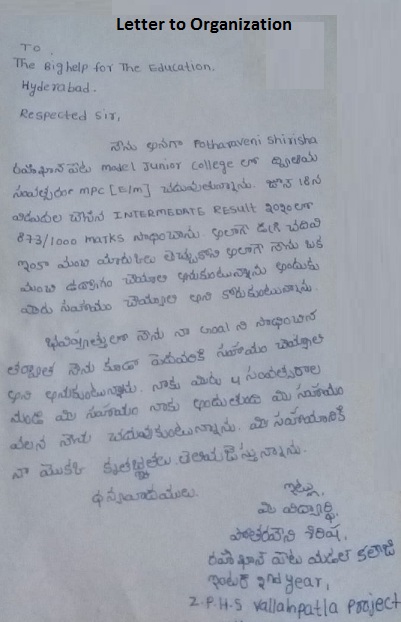 Letter to Organization
To
The Bighelp for The Education.
Hyderabad.
Respected Sir,
నేను అనగా Potharaveni Shirisha
రహీంఖాన్ పేట model Junior College లో ద్వితీయ
సంవత్సరం MPC [E/M] చదువుతున్నాను. జూన్ 18న
విడుదల చేసిన INTERMEDATE RESULT 2020లో
873/1000 marks సాధించాను. అలాగే డిగ్రీ చదివి
ఇంకా మంచి మార్కులు తెచ్చుకొని అలాగే నేను ఒక
మంచి ఉద్యోగం చేయాలి అనుకుంటున్నాను అందుకు
మీరు సహాయం చెయ్యాలి అని కోరుకుంటున్నాను.
భవిష్యత్తులో నేను నా Goal ని సాధించిన
తర్వాత నేను కూడా పేదవారికి సహాయం చెయ్యాలి
అని అనుకుంటున్నాను. నాకు మీరు 4 సంవత్సరాల
నుండి మీ సహాయం నాకు అందుతుంది మీ సహాయం
వలన నేను చదువుకుంటున్నాను. మీ సహాయానికి
నా యొక్క కృతజ్ఞతలు తెలియజేస్తున్నాను.
ధన్యవాదములు.
ఇట్లు,
మీ విద్యార్థి,
పోతరవేని శిరిష,
రహీంఖాన్ పేట మడల్ కలాజి
ఇంటర్ 2nd year,
Z.P.H.S Vallampatla Project